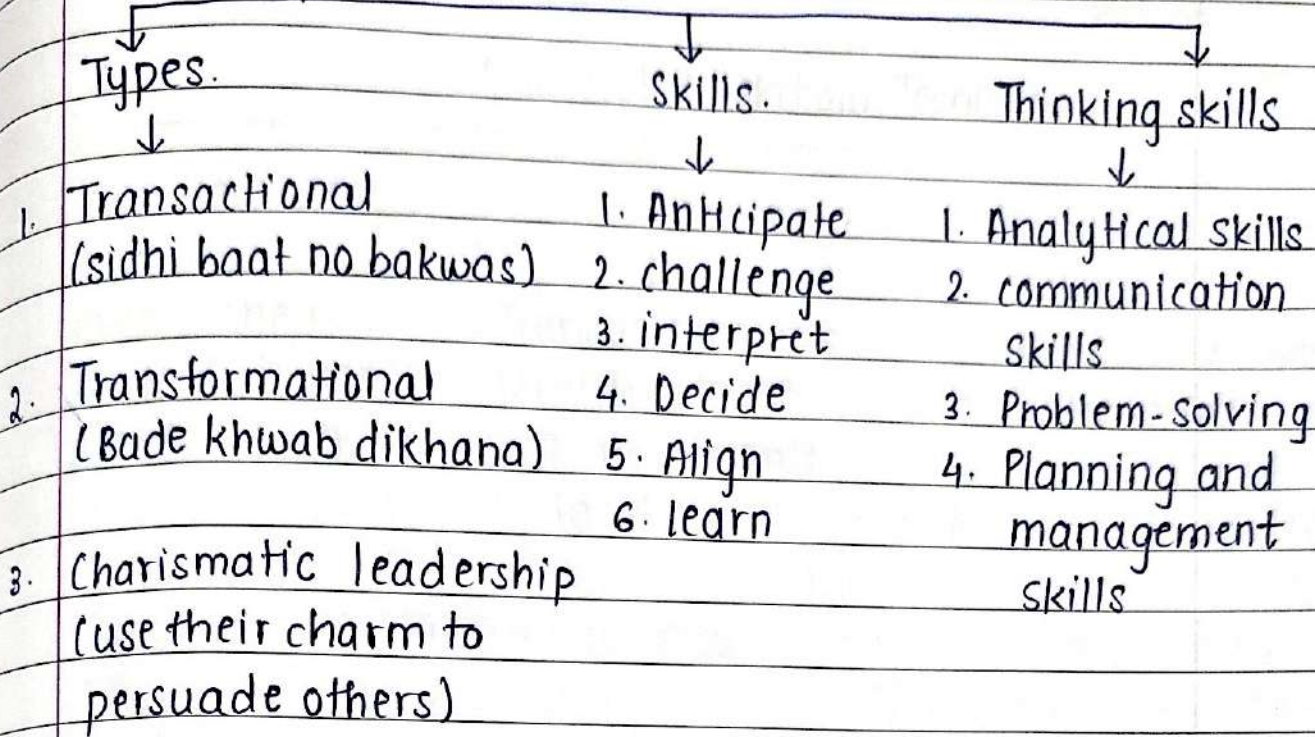 Types.
Skills.
Thinking skills
1. Transactional
(sidhi baat no bakwas)
2. Transformational
(Bade khwab dikhana)
3. Charismatic leadership
(use their charm to
persuade others)
1. Anticipate
2. challenge
3. interpret
4. Decide
5. Align
6. learn
1. Analytical skills
2. communication
skills
3. Problem-solving
4. Planning and
management
skills